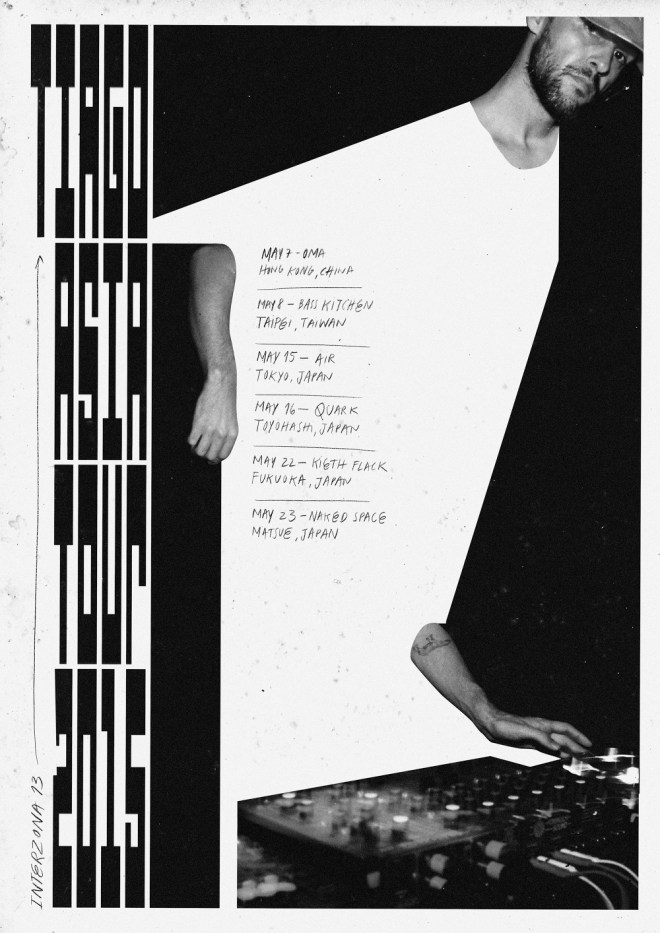 TIAGO
ASIA
TOUR
2015
INTERZONA 13
MAY 7 - OMA
HONG KONG, CHINA
MAY 8 - BASS KITCHEN
TAIPEI, TAIWAN
MAY 15 - AIR
TOKYO, JAPAN
MAY 16 - QUARK
TOYOHASHI, JAPAN
MAY 22 - KIETH FLACK
FUKUOKA, JAPAN
MAY 23 - NAKED SPACE
MATSUE, JAPAN